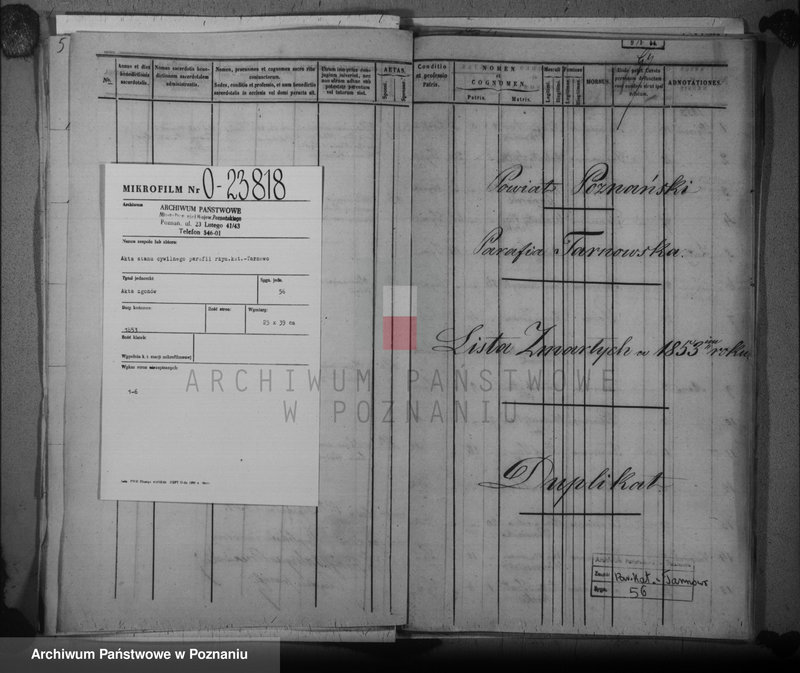 5
No.
Annus et dies benedictionis sacerdotalis.
Nomen sacerdotis benedictionem sacerdotalem administrantis.
Nomen, praenomen et cognomen sacro ritu conjunctorum.
Sedes, conditio et professio, et num benedictio sacerdotalis in ecclesia vel domi peracta sit.
AETAS.
Sponsi.
Sponsae.
MIKROFILM Nr 0-23818
Archiwum
ARCHIWUM PAŃSTWOWE
Poznań, ul. 23 Lutego 41/43
Telefon 546-01
Nazwa zespołu lub zbioru:
Akta stanu cywilnego parafii rzym.kat.-Tarnowo
Tytuł jednostki:
Sygn. jedn.
Akta zgonów
56
Daty końcowe:
Ilość stron:
Wymiary:
1853
23 x 39 cm
Ilość klatek:
Wpisów stron niezapisanych
1-6
Conditio et professio Patris.
NOMEN et COGNOMEN.
Patris.
Matris.
Masculi
Feminae
Legitimi.
Illegitimi.
MORBUS.
ADNOTATIONES.
Powiat Poznański
Parafia Tarnowska.
Lista Zmarłych w 1853 roku
Duplikat.
ARCHIWUM PAŃSTWOWE
W POZNANIU
Archiwum Państwowe w Poznaniu
Zespół Par. Kat. - Tarnowo
Sygn. 56
Archiwum Państwowe w Poznaniu